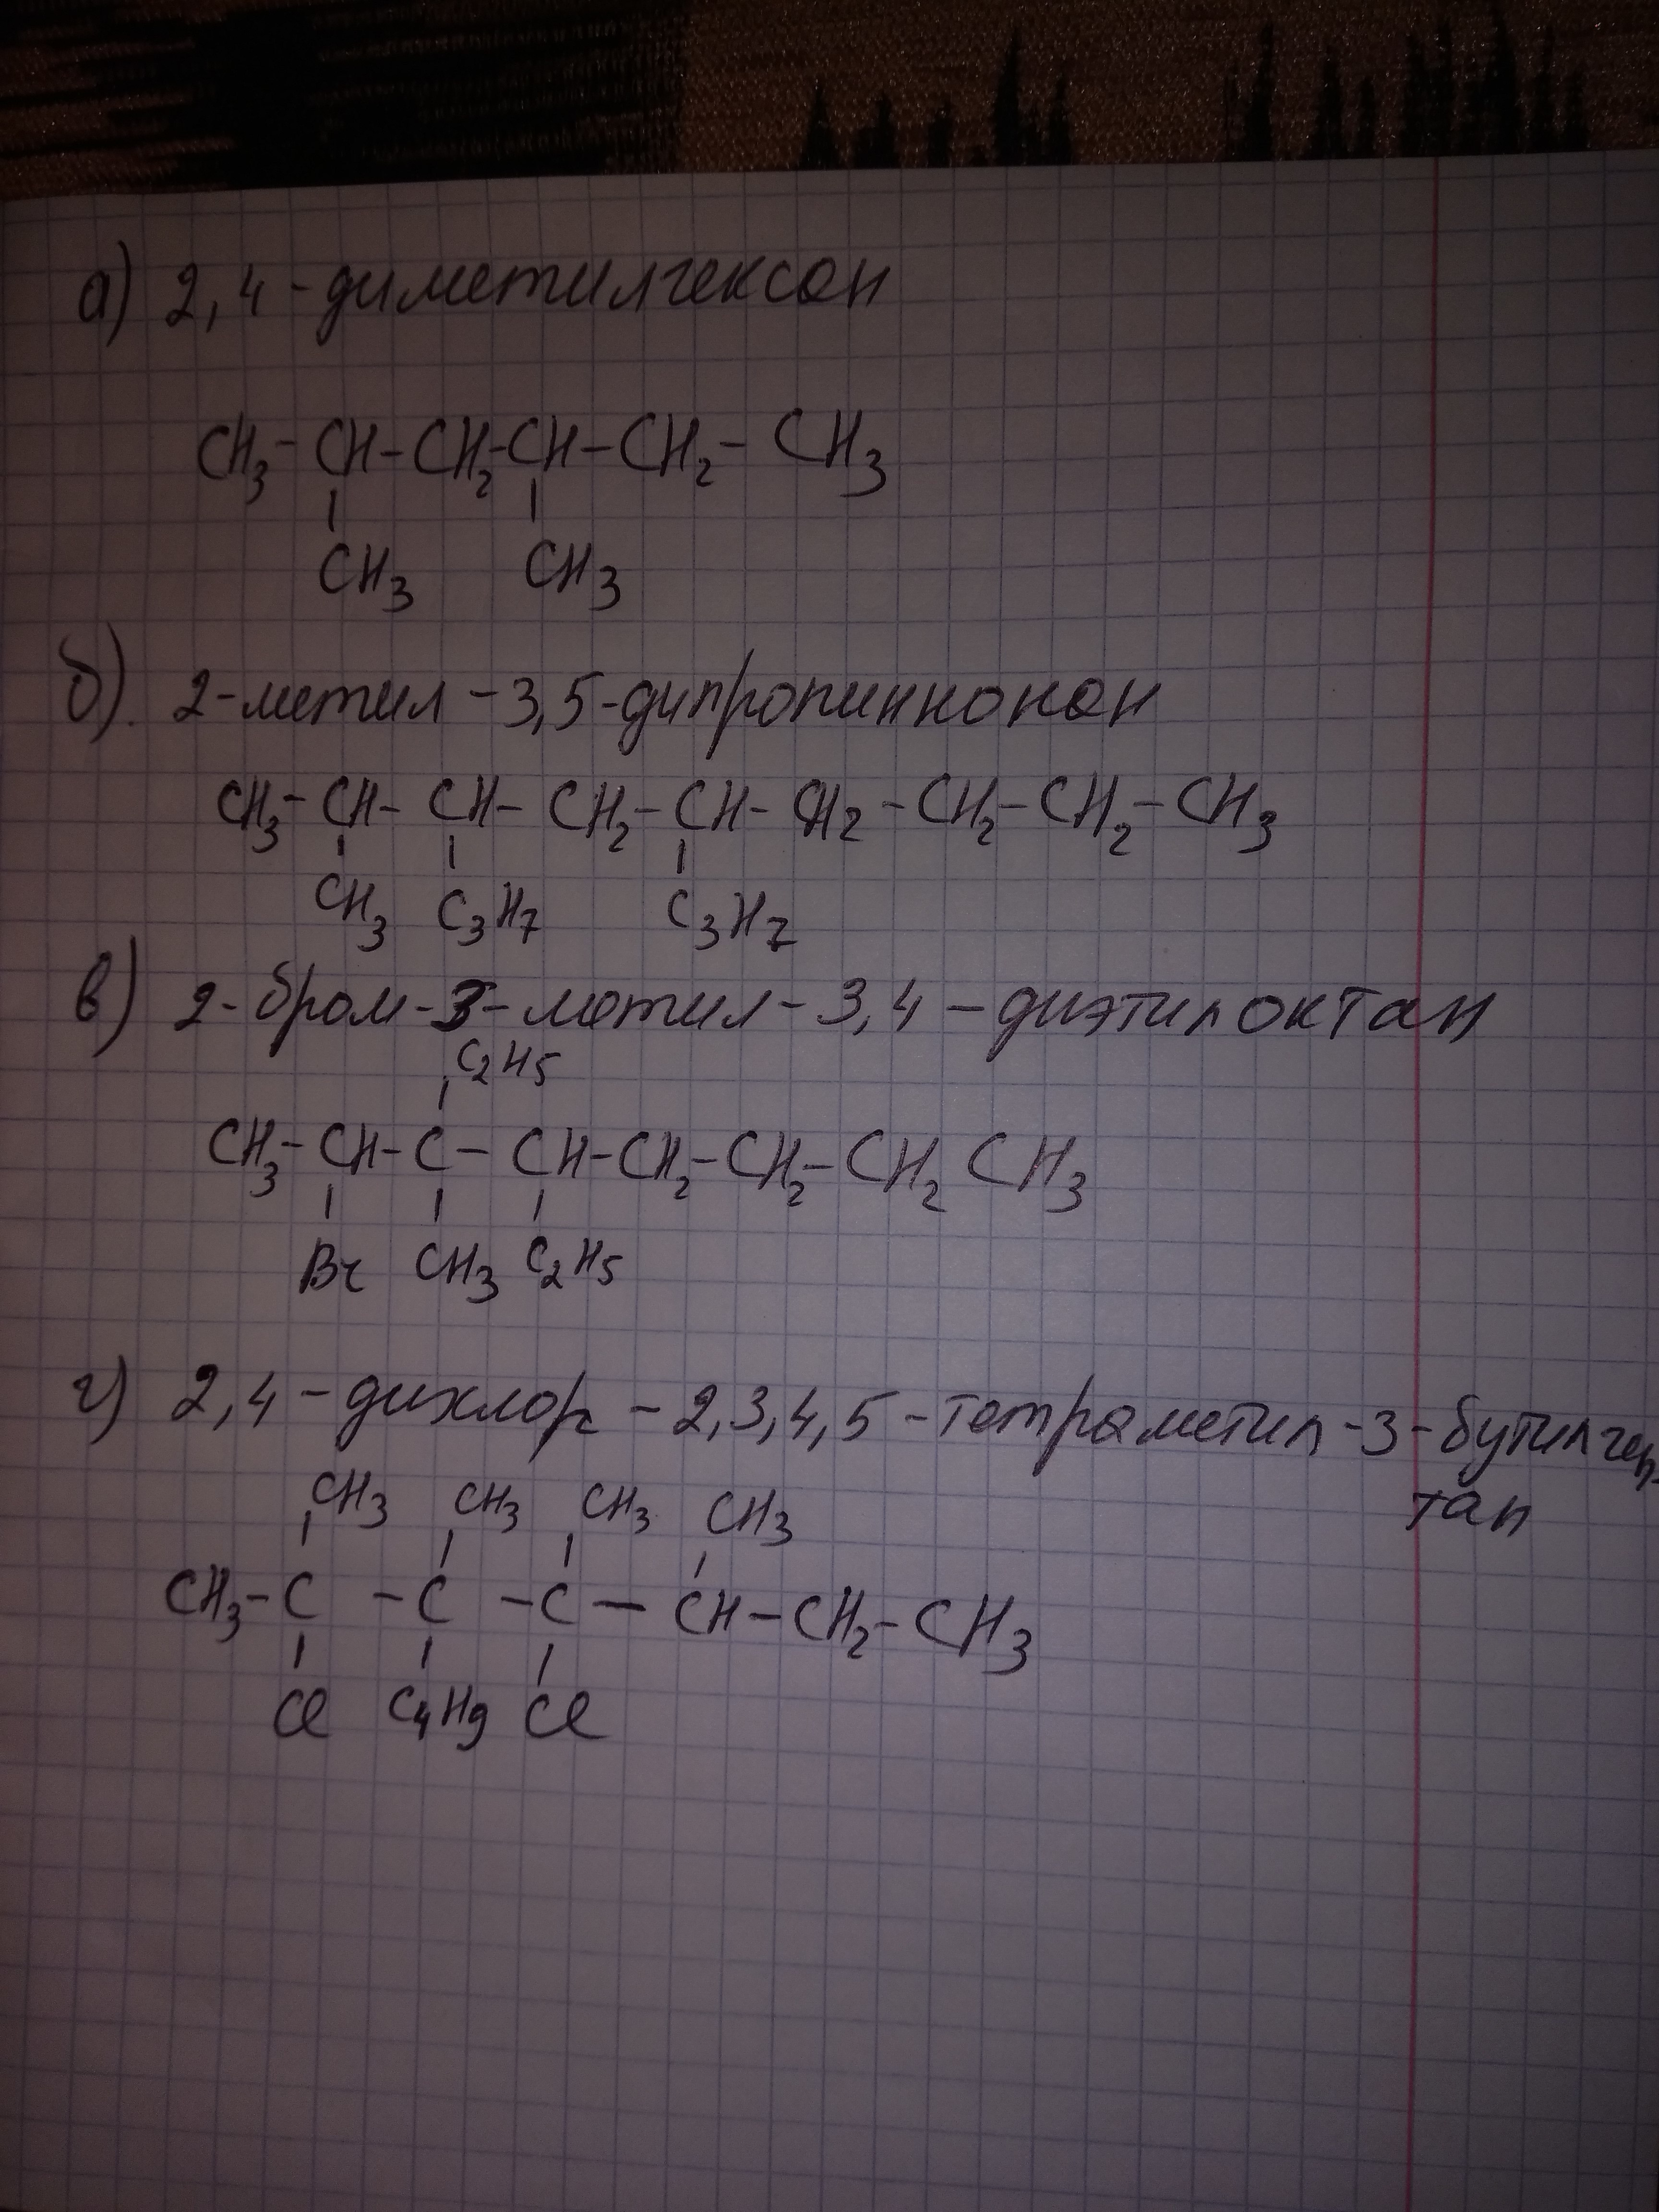 а) 2,4-диметилгексан
CH₃-CH-CH₂-CH-CH₂-CH₃
CH₃ CH₃
б). 2-метил-3,5-дипропиннонан
CH₃-CH-CH-CH₂-CH-CH₂-CH₂-CH₂-CH₃
CH₃ C₃H₇ C₃H₇
в) 2-бром-3-метил-3,4-диэтилоктан
C₂H₅
CH₃-CH-C-CH-CH₂-CH₂-CH₂ CH₃
Br CH₃ C₂H₅
г) 2,4-дихлор-2,3,4,5-тетраметил-3-бутилгеп-
тан
CH₃ CH₃ CH₃ CH₃
CH₃-C-C-C-CH-CH₂-CH₃
Cl C₄H₉ Cl